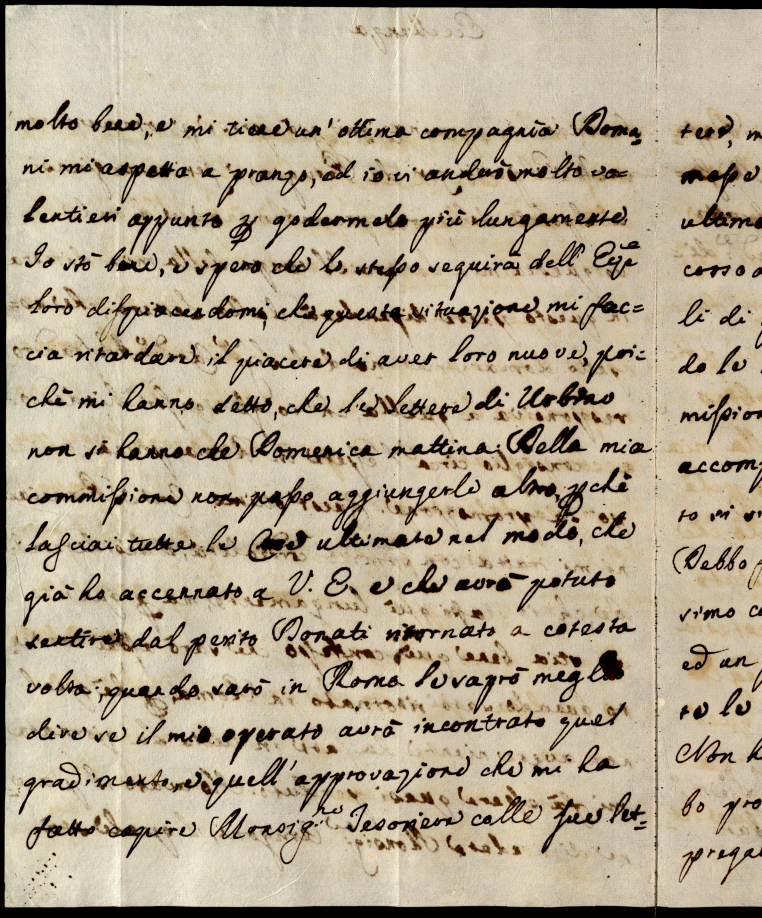 molto bene, e mi tiene un' ottima compagnia Doma=
ni mi aspetta a pranzo, ed io vi anderò molto vo=
lentieri appunto p godermelo più lungamente
Io stò bene, e spero che lo stesso seguirà dell' Ecc.e
loro dispiacendomi, che questa situazione mi fac=
cia ritardare il piacere di aver loro nuove, poi=
chè mi hanno detto, che le lettere di Urbino
non si hanno che Domenica mattina. Della mia
commissione non posso aggiungerle altro, pchè
lasciai tutte le ultimate nel modo, che
già ho accennato a V. E. e che avrà potuto
sentire dal perito Donati ritornato a cotesta
volta; quando sarò in Roma le saprò meglio
dire se il mio operato avrà incontrato quel
gradimento, e quell'approvazione che mi ha
fatto capire Monsig.re Tesoriere colle sue let=
tere, m
messe
ultimo
corso a
li di
do le
mission
accomp
to vi
Debbo
simo co
ed un
te le
Non h
bo pro
prega